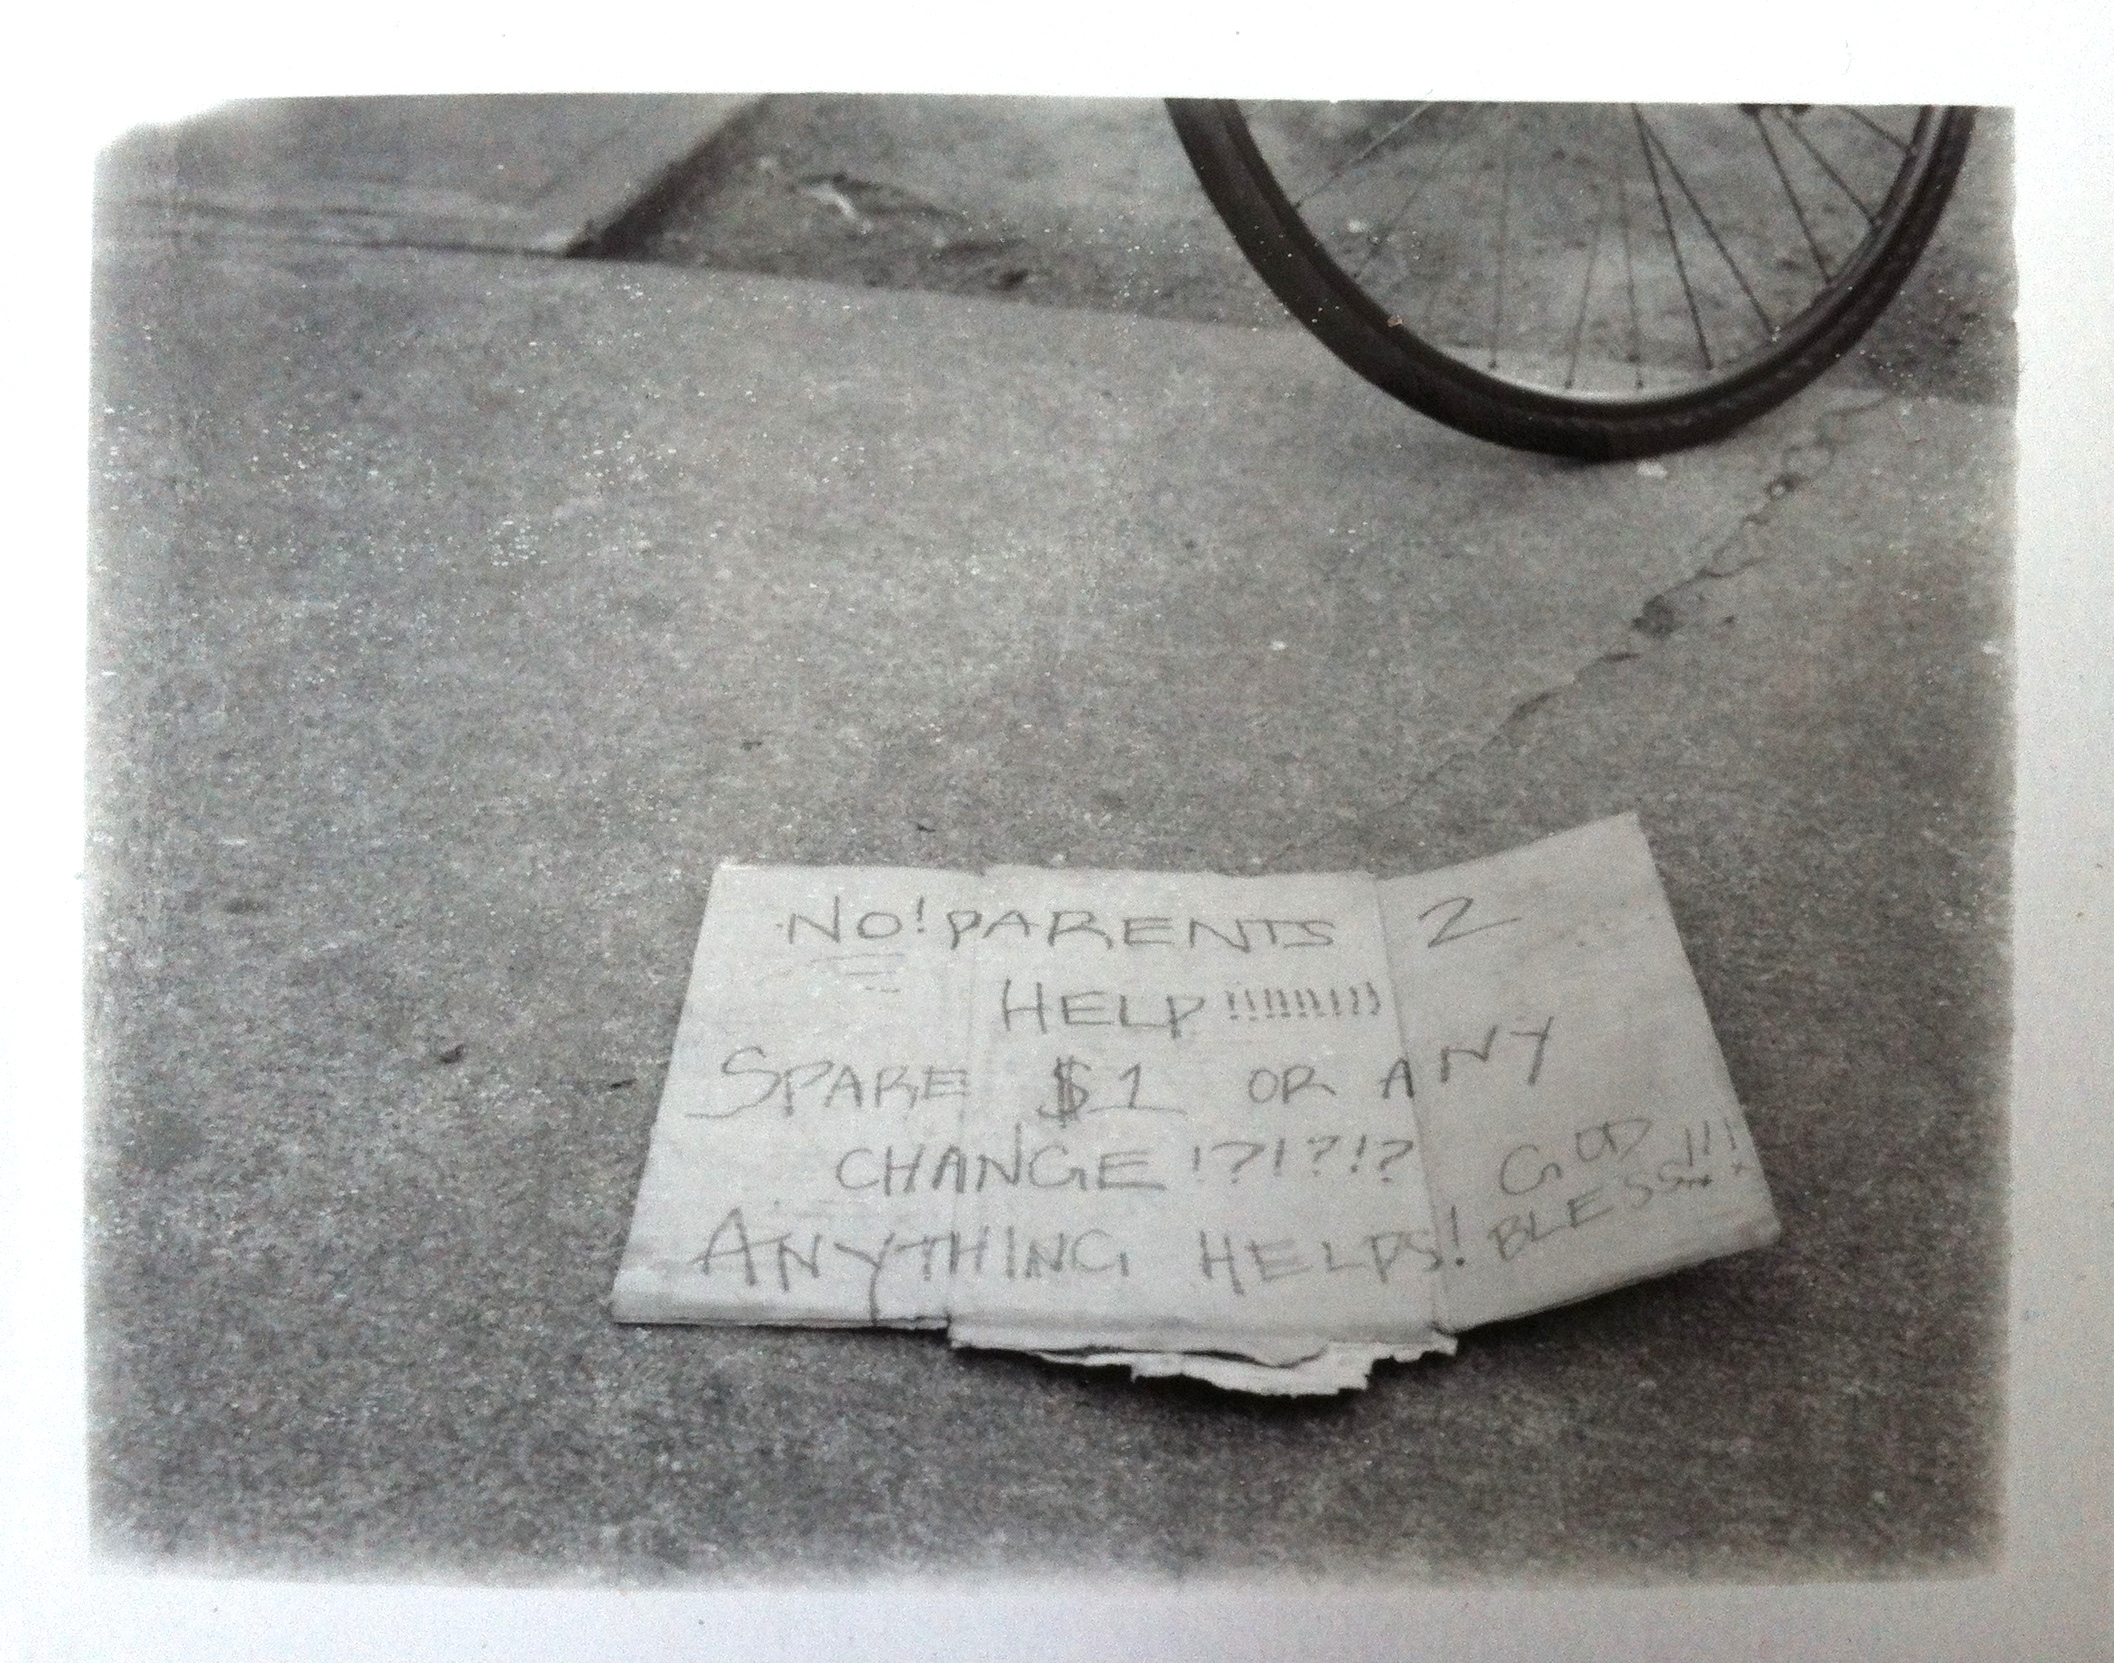 NO! PARENTS 2
HELP!!!!!!!!!
SPARE $1 OR ANY
CHANGE!?!?!?
ANYTHING HELPS!
GOD
BLESS!!!